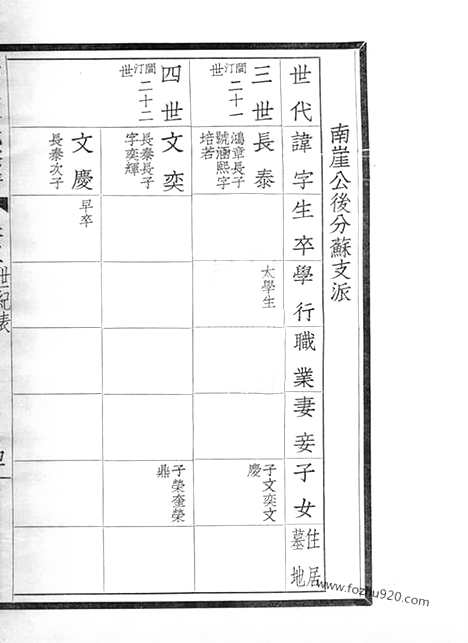 南崖公後分蘇支派
世代
諱字
生卒
學行
職業
妻妾
子女
住居
墓地
三世
閩汀二十一
世
長泰
鴻章長子
號涵熙字
培若
太學生
子文奕文
慶
四世
閩汀二十二
世
文奕
長泰長子
字奕輝
子榮奎榮
鼎
文慶
長泰次子
早卒
世紀表
www.fozhu920.com